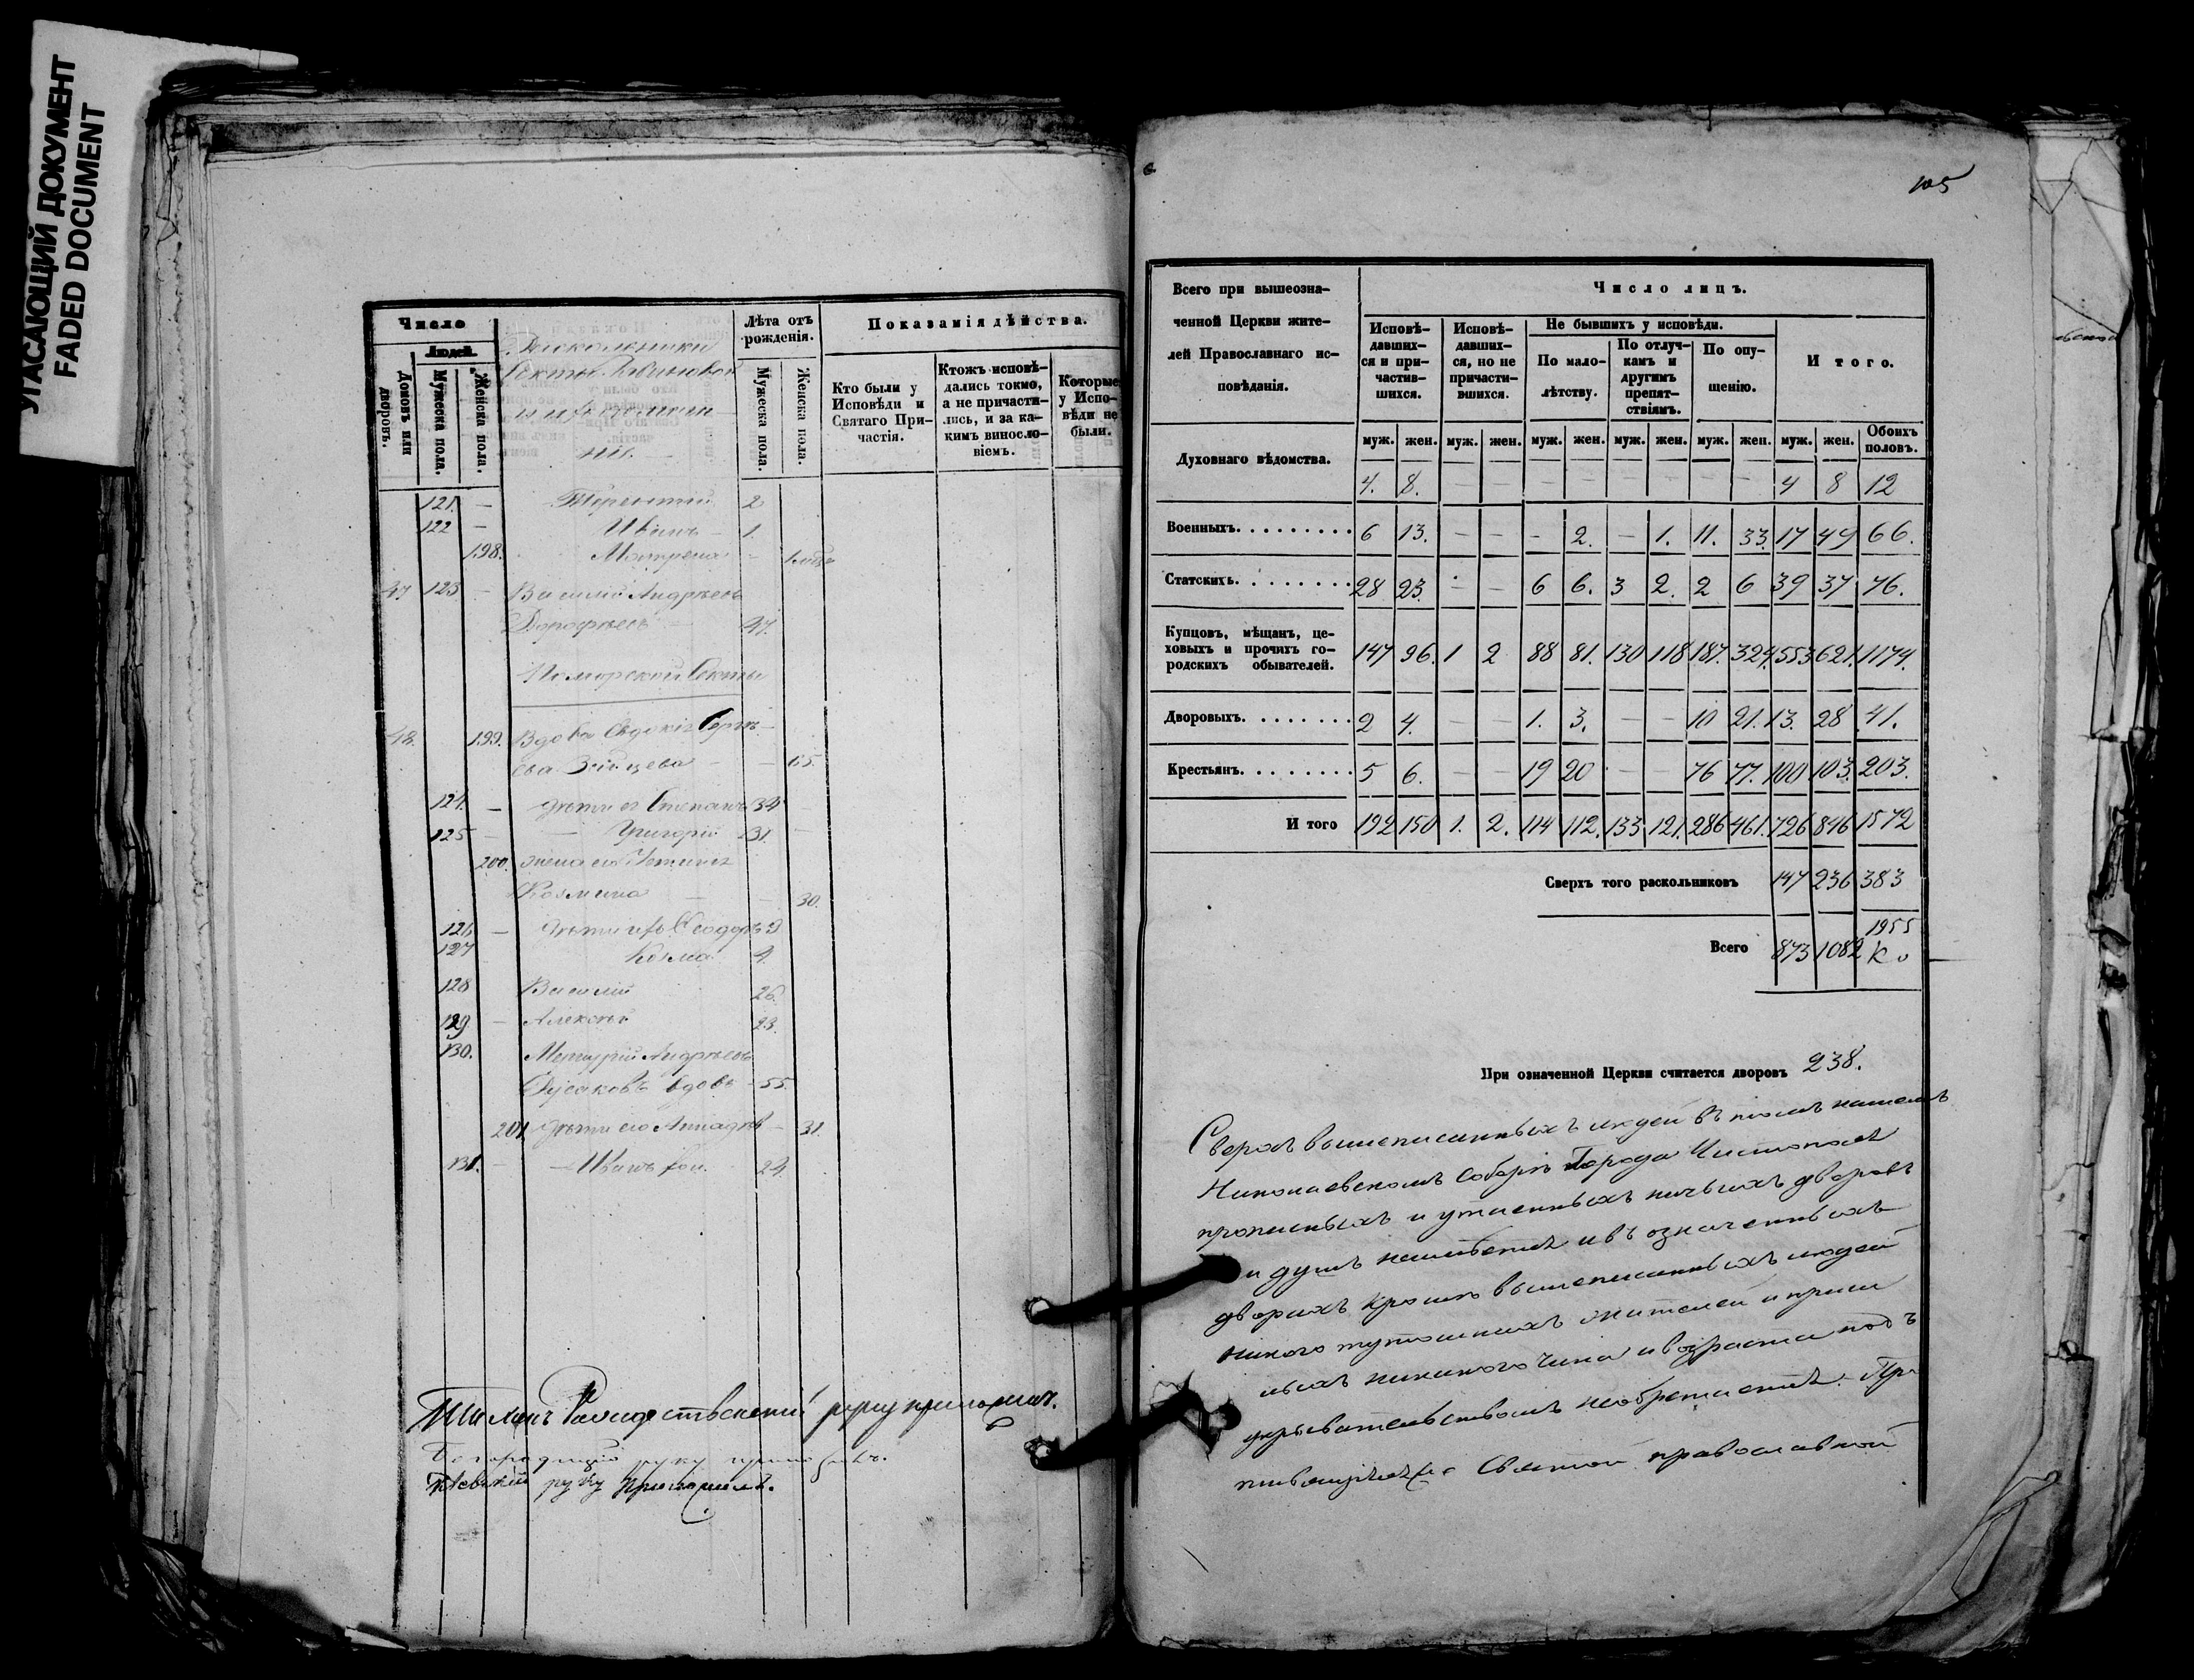 УГАСАЮЩИЙ ДОКУМЕНТ
FADED DOCUMENT
Число
Людей.
Домовъ или дворовъ.
Мужеска пола.
Женска пола.
Раскольники
Секты
Лѣта отъ рожденія.
Мужеска пола.
Женска пола.
Показанія дѣйства.
Кто были у Исповѣди и Святаго Причастія.
Ктожъ исповѣдались токмо, а не причастились, и за какимъ винословіемъ.
Которые у Исповѣди не были.
121. — Терентій 2
122 — Иванъ — 1.
198. Матрена —
47 123 — Василій Андреевъ
Дорофеевъ — 47.
Поморской Секты
48. 199. Вдова Евдокія Серге-
ева Зайцева — — 65.
124. — дѣти ея Степанъ 34
125 — Григорій 31.
200. жена его
Козмина — 30.
126 — дѣти ихъ Ѳеодоръ 9
127 Козма 4.
128 Василій 26.
129 — Алексѣй 23.
130. Меркурій Андреевъ
Русаковъ вдовъ — 55.
201 дѣти его — 31.
131. — Иванъ хол. 24.
Рождественскій руку приложилъ.
руку приложилъ.
руку приложилъ.
105
Всего при вышеозна-
ченной Церкви жите-
лей Православнаго ис-
повѣданія.
Число лицъ.
Исповѣдавшихся и причастившихся.
Исповѣдавшихся, но не причастившихся.
Не бывшихъ у исповѣди.
По малолѣтству.
По отлучкамъ и другимъ препятствіямъ.
По опущенію.
Итого.
муж. жен. муж. жен. муж. жен. муж. жен. муж. жен. муж. жен. Обоихъ половъ.
Духовнаго вѣдомства. 4. 8. — — — — — — — — 4 8 12
Военныхъ. 6 13. — — — 2. — 1. 11. 33. 17 49 66.
Статскихъ. 28 23. — — 6 6. 3 2. 2 6 39 37 76.
Купцовъ, мѣщанъ, це-
ховыхъ и прочихъ го-
родскихъ обывателей. 147 96. 1 2 88 81. 130 118 187. 324. 553 621. 1174.
Дворовыхъ. 2 4. — — 1. 3. — — 10 21. 13. 28 41.
Крестьянъ. 5 6. — — 19 20 — — 76 77. 100 103. 203.
И того 192 150 1. 2. 114 112. 133. 121. 286 461. 726 846 1572
Сверхъ того раскольниковъ 147 236 383
1955
Всего 873 1082
При означенной Церкви считается дворовъ 238.
Сверхъ вышеписанныхъ людей въ томъ нашемъ
Николаевскомъ Соборѣ Города Чистополя
прописныхъ и утаенныхъ ничьихъ дворовъ
и душъ неимѣется и въ означенныхъ
дворахъ кромѣ вышеписанныхъ людей
никого тутошнихъ жителей и приш
лыхъ никакого чина и возраста подъ
укрывательствомъ необретается. Про
тивящихся Святой православной